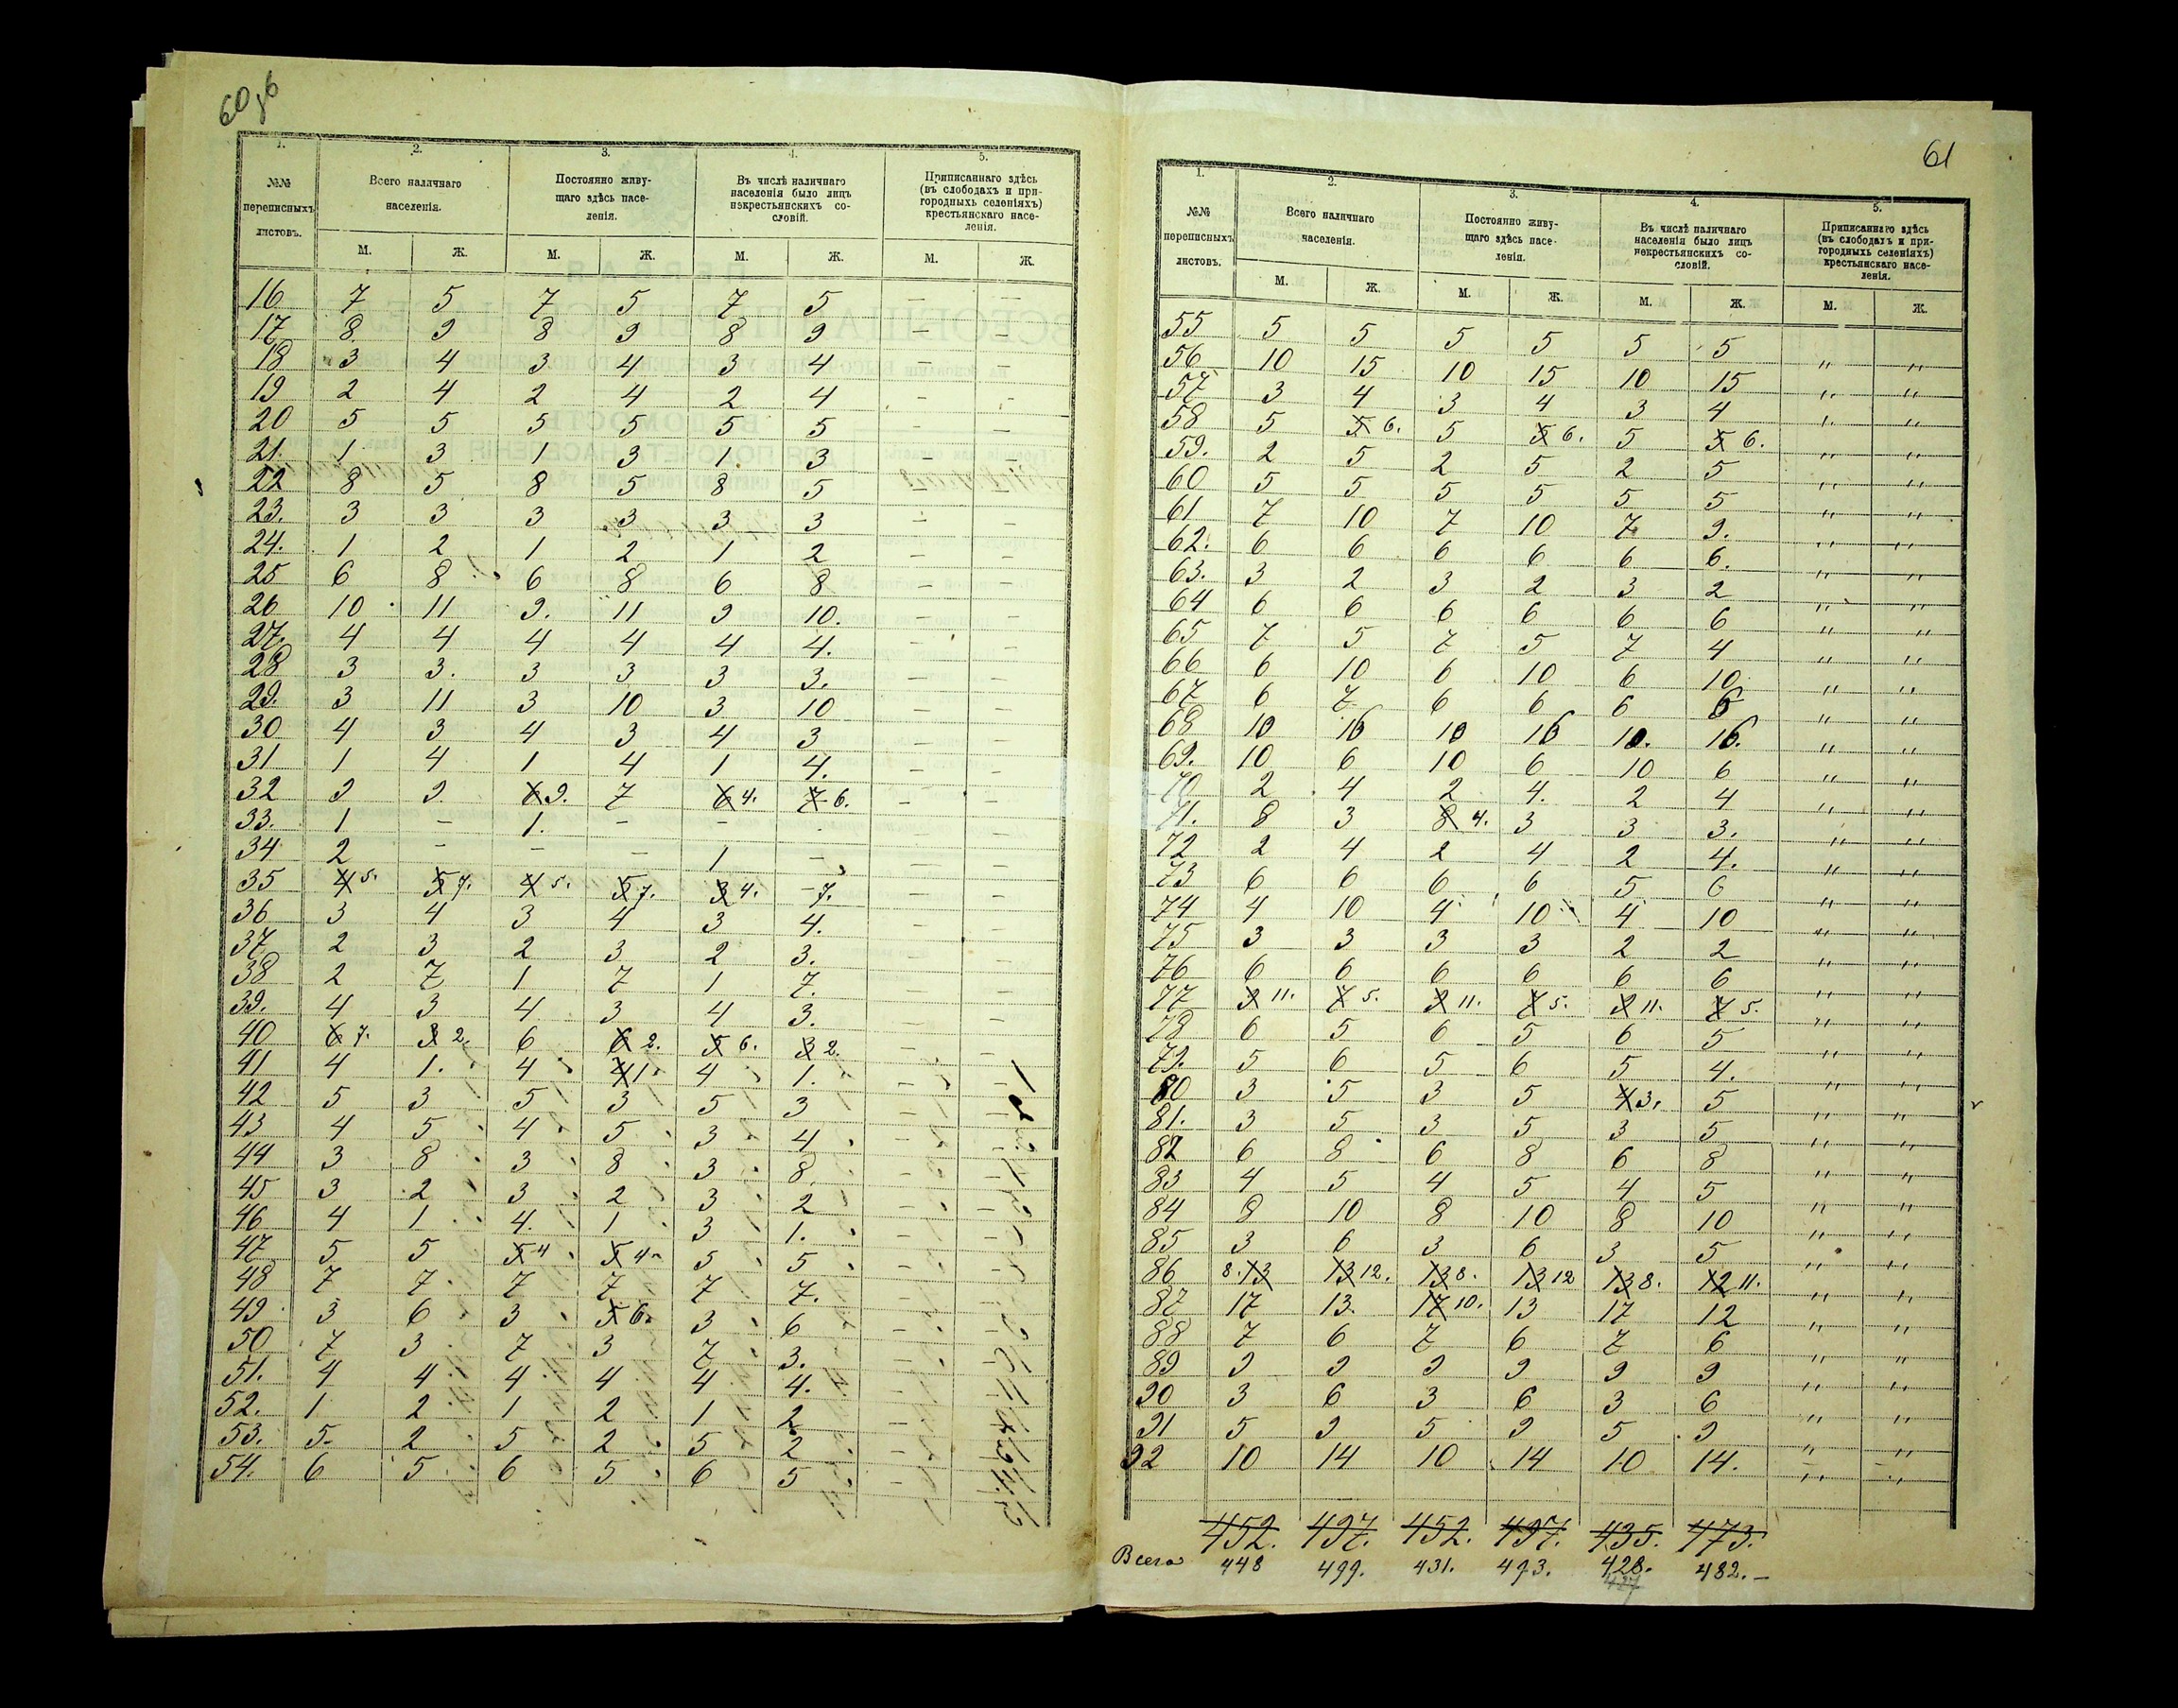 60об
1. 2. 3. 4. 5.
№№ переписныхъ листовъ.
Всего наличнаго населенія.
Постоянно живущаго здѣсь населенія.
Въ числѣ наличнаго населенія было лицъ некрестьянскихъ сословій.
Приписаннаго здѣсь (въ слободахъ и пригородныхъ селеніяхъ) крестьянскаго населенія.
М. Ж. М. Ж. М. Ж. М. Ж.
16 7 5 7 5 7 5 – –
17 8. 9 8 9 8 9 – –
18 3 4 3 4 3 4 – –
19 2 4 2 4 2 4 – –
20 5 5 5 5 5 5 – –
21. 1 3 1 3 1 3 – –
22 8 5 8 5 8 5 – –
23. 3 3 3 3 3 3 – –
24. 1 2 1 2 1 2 – –
25 6 8 6 8 6 8 – –
26 10 11 9. 11 9 10. – –
27. 4 4 4 4 4 4. – –
28 3 3. 3 3 3 3. – –
29. 3 11 3 10 3 10 – –
30 4 3 4 3 4 3 – –
31 1 4 1 4 1 4. – –
32 9 9. 6 9. 7 6 4. 7 6. – –
33. 1 – 1. – – – –
34 2 – – – 1 – – –
35 4 5. 5 7. 4 5. 5 7. 3 4. – 7. – –
36 3 4 3 4 3 4. – –
37 2 3 2 3 2 3. – –
38 2 7 1 7 1 7. – –
39. 4 3 4 3 4 3. – –
40 6 7. 3 2. 6 6 2. 5 6. 3 2. – –
41 4 1. 4 4 1 4 1. – –
42 5 3 5 3 5 3 – –
43 4 5 4 5 3 4 – –
44 3 8 3 8 3 8. – –
45 3 2 3 2 3 2 – –
46 4 1 4. 1 3 1. – –
47 5 5 5 4 5 4 5 5 – –
48 7 7 7 7 7 7. – –
49 3 6 3 5 6 3 6 – –
50 7 3 7 3 7 3. – –
51. 4 4 4 4 4 4. – –
52. 1 2 1 2 1 2 – –
53. 5 2 5 2 5 2 – –
54. 6 5 6 5 6 5 – –
61
1. 2. 3. 4. 5.
№№ переписныхъ листовъ.
Всего наличнаго населенія.
Постоянно живущаго здѣсь населенія.
Въ числѣ наличнаго населенія было лицъ некрестьянскихъ сословій.
Приписаннаго здѣсь (въ слободахъ и пригородныхъ селеніяхъ) крестьянскаго населенія.
М. Ж. М. Ж. М. Ж. М. Ж.
55 5 5 5 5 5 5 " "
56 10 15 10 15 10 15 " "
57 3 4 3 4 3 4 " "
58 5 5 6. 5 5 6. 5 5 6. " "
59. 2 5 2 5 2 5 " "
60 5 5 5 5 5 5 " "
61 7 10 7 10 7 9. " "
62. 6 6 6 6 6 6. " "
63. 3 2 3 2 3 2 " "
64 6 6 6 6 6 6 " "
65 7 5 7 5 7 4 " "
66 6 10 6 10 6 10 " "
67 6 7 6 6 6 6 " "
68 10 16 10 16 10. 16. " "
69. 10 6 10 6 10 6 " "
70 2 4 2 4. 2 4 " "
71. 8 3 8 4. 3 3 3. " "
72 2 4 2 4 2 4. " "
73 6 6 6 6 5 6 " "
74 4 10 4 10 4 10 " "
75 3 3 3 3 2 2 " "
76 6 6 6 6 6 6 " "
77 9 11. 7 5. 9 11. 7 5. 9 11. 7 5. " "
78 6 5 6 5 6 5 " "
79. 5 6 5 6 5 4. " "
80 3 5 3 5 4 3. 5 " "
81. 3 5 3 5 3 5 " "
82 6 8 6 8 6 8 " "
83 4 5 4 5 4 5 " "
84 8 10 8 10 8 10 " "
85 3 6 3 6 3 5 " "
86 8. 13 13 12. 13 8. 13 12 13 8. 12 11. " "
87 17 13. 17 10. 13 17 12 " "
88 7 6 7 6 7 6 " "
89 9 9 9 9 9 9 " "
90 3 6 3 6 3 6 " "
91 5 9 5 9 5 9 " "
92 10 14 10 14 10 14. " "
452. 497. 452. 497. 435. 473.
Всего 448 499. 431. 493. 428. 482. –
427